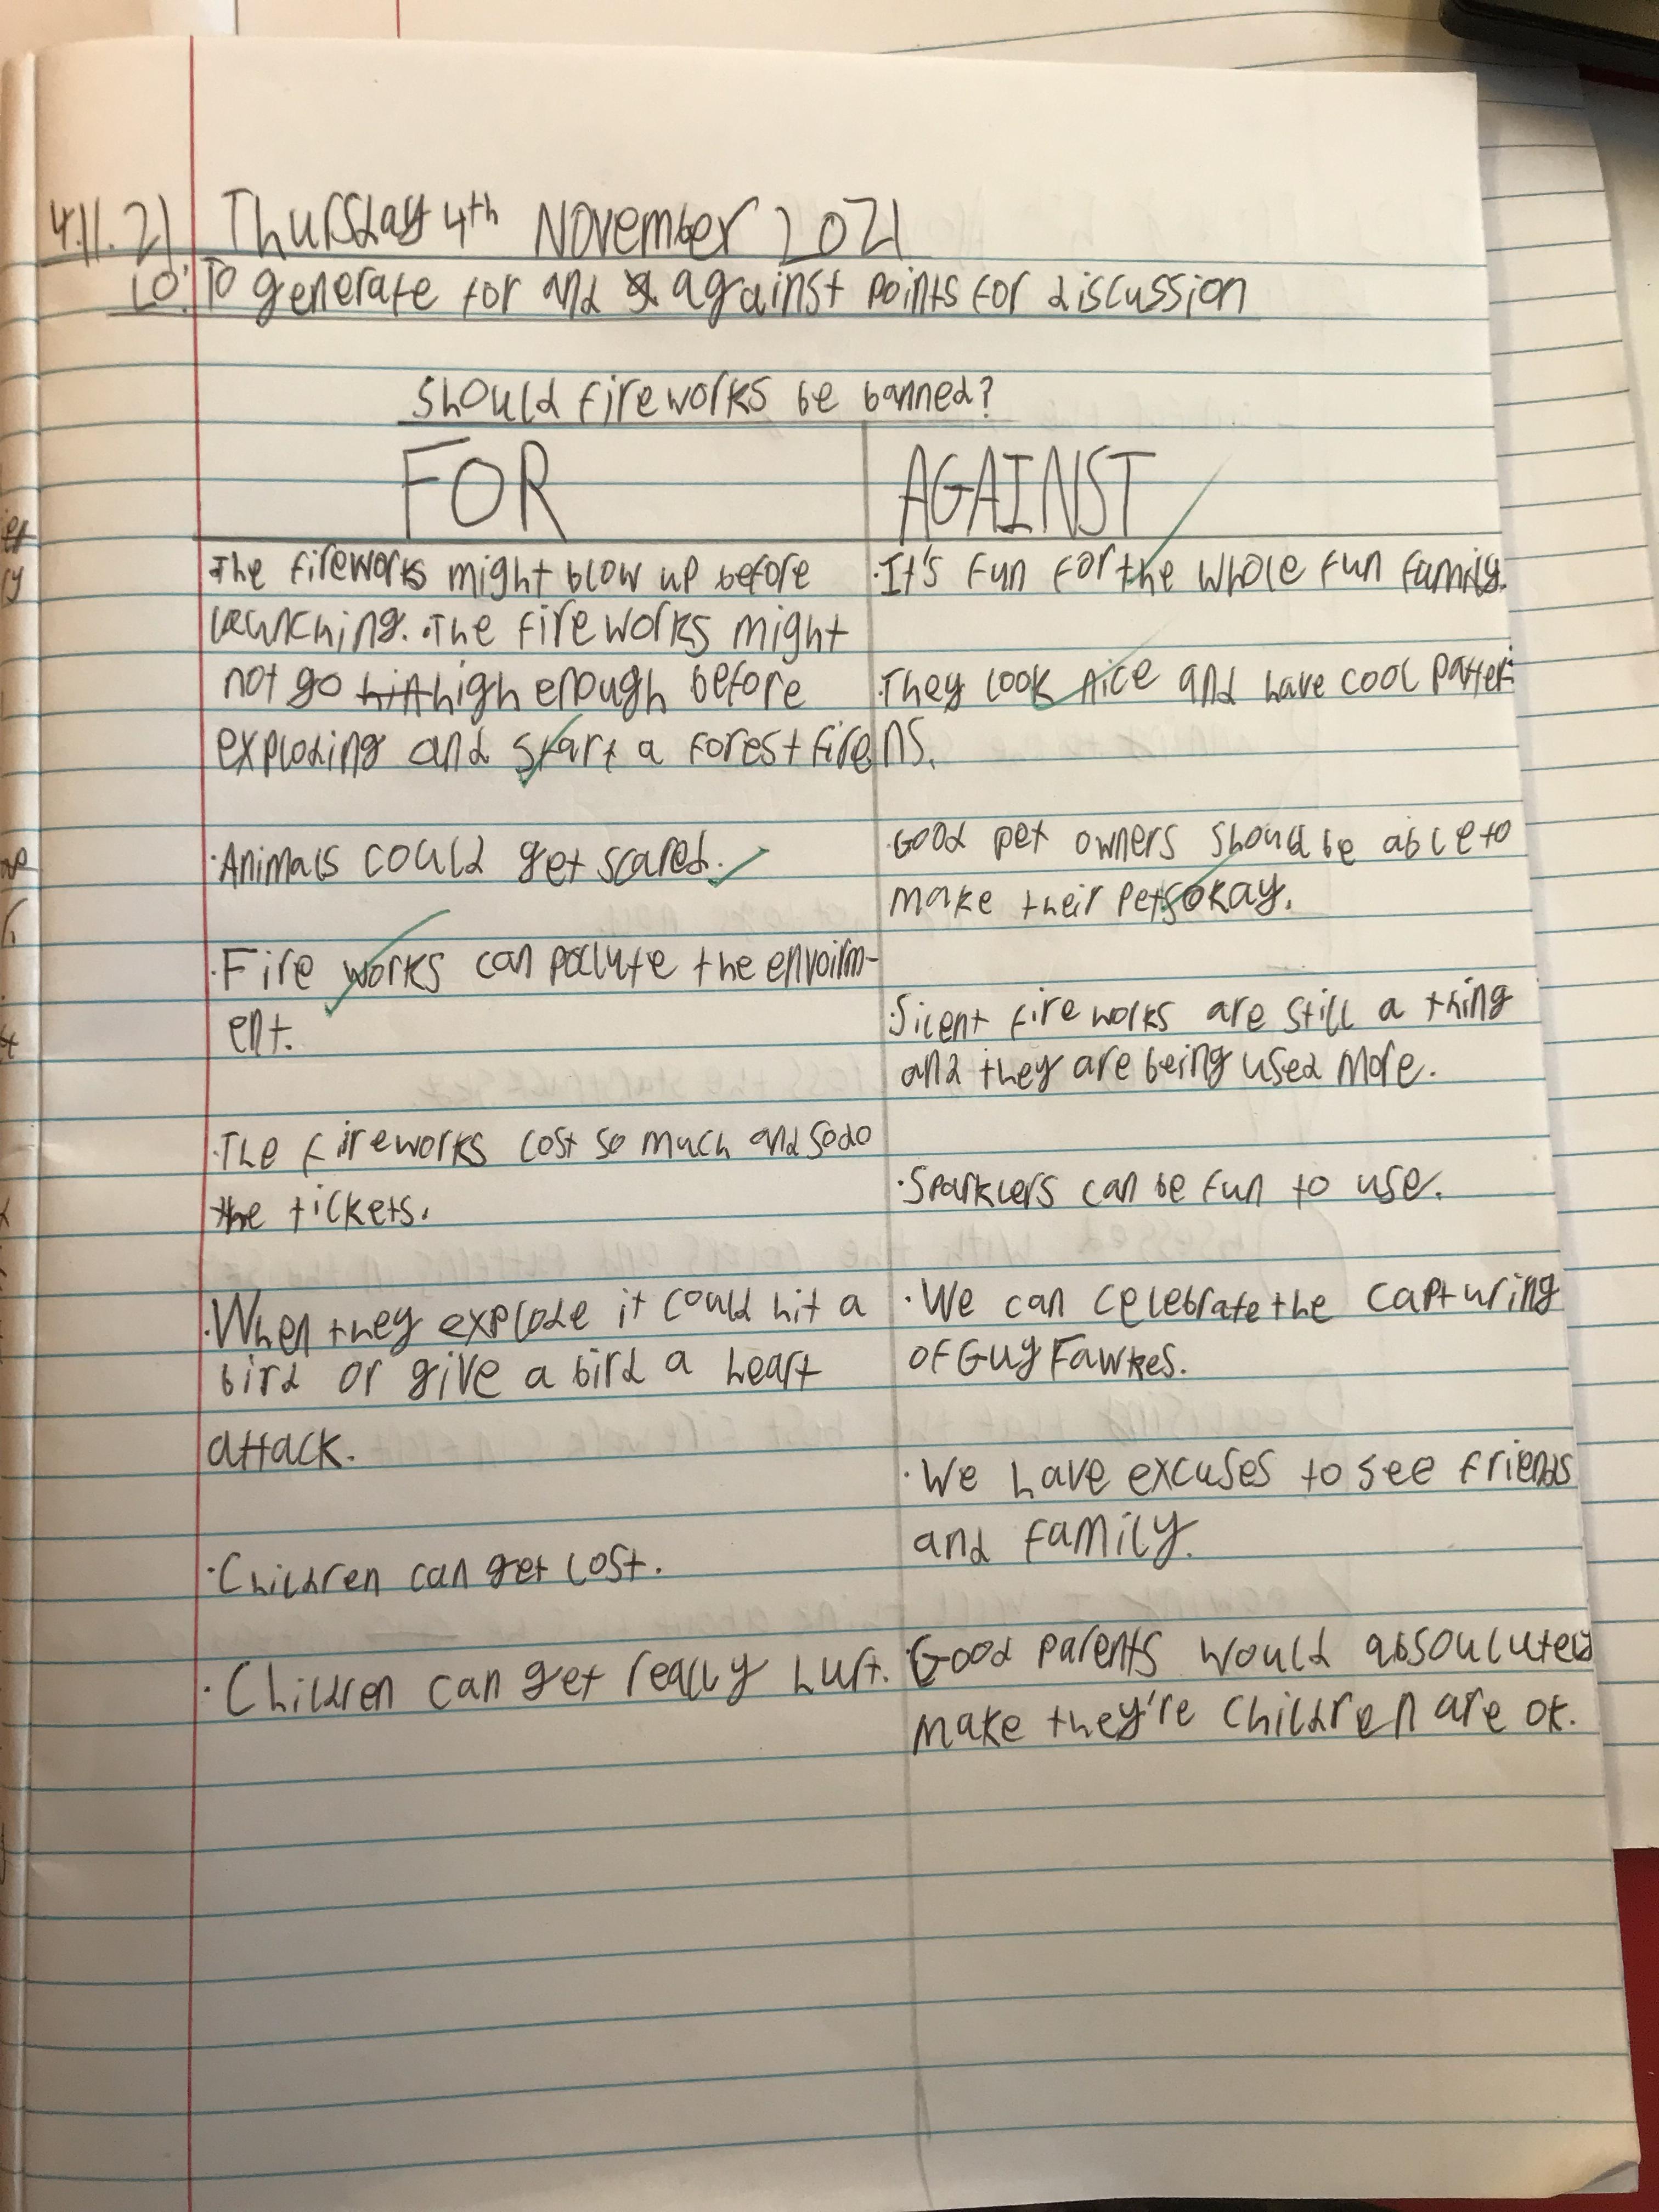 4.11.21 Thursday 4th November 2021
LO: To generate for and against points for discussion
Should fireworks be banned?
FOR
The fireworks might blow up before
launching. The fireworks might
not go high enough before
exploding and start a forest fire
·Animals could get scared.
·Fire works can pollute the envoirm-
ent.
·The fireworks cost so much and so do
the tickets.
·When they explode it could hit a
bird or give a bird a heart
attack.
·Children can get lost.
·Children can get really hurt.
AGAINST
·It's fun for the whole fun family.
·They look nice and have cool patter-
ns.
·Good pet owners should be able to
make their pets okay.
·Silent fire works are still a thing
and they are being used more.
·Sparklers can be fun to use.
·We can celebrate the capturing
of Guy Fawkes.
·We have excuses to see friends
and family.
·Good parents would absoulutely
make they're children are ok.